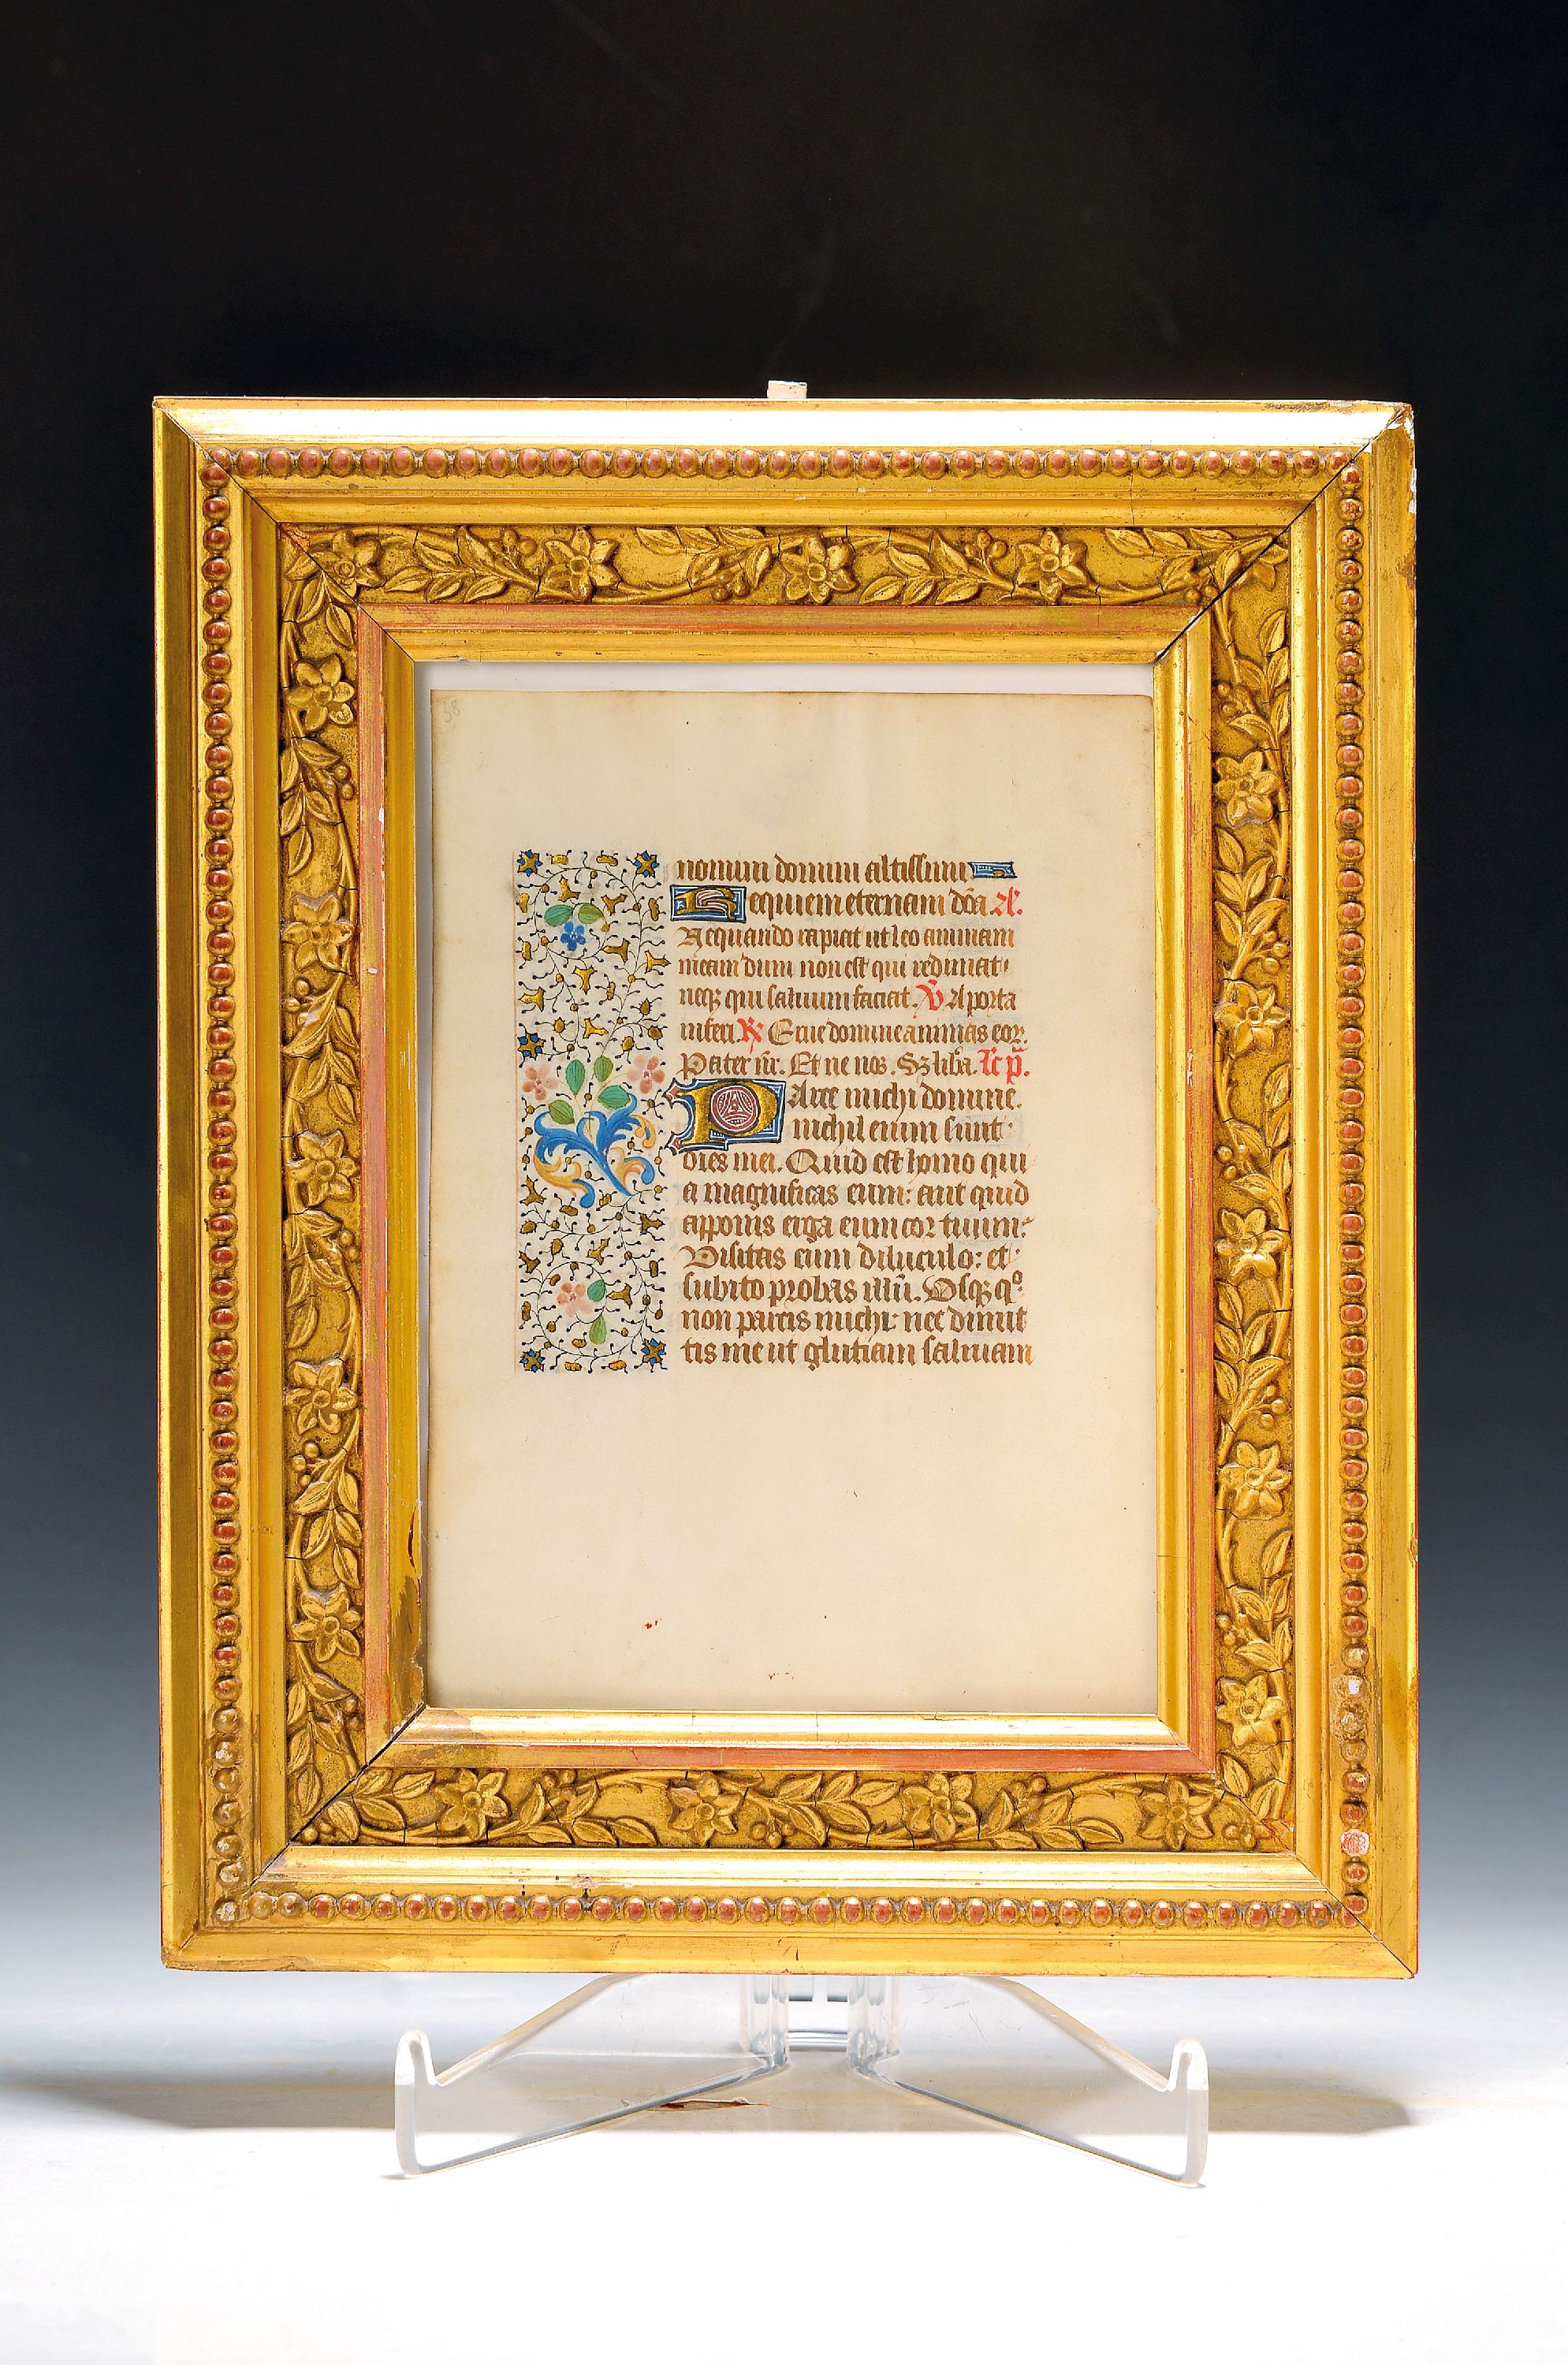 38
nomini domini altissimi
Requiem eternam dōa A͞.
Nequando rapiat ut leo animam
meam dum non est qui redimat
neqꝫ qui saluum faciat. V̄ A porta
inferi. ℞ Erue domine animas eoꝝ.
Pater nr̄. Et ne nos. Sꝫ liba. Lc̄ p̄.
Parce michi domine.
nichil enim sunt
dies mei. Quid est homo qui
a magnificas eum: aut quid
apponis erga eum cor tuum:
Visitas eum diluculo: et
subito probas illū. Vsqꝫ qͦ
non parcis michi: nec dimit
tis me ut glutiam saliuam